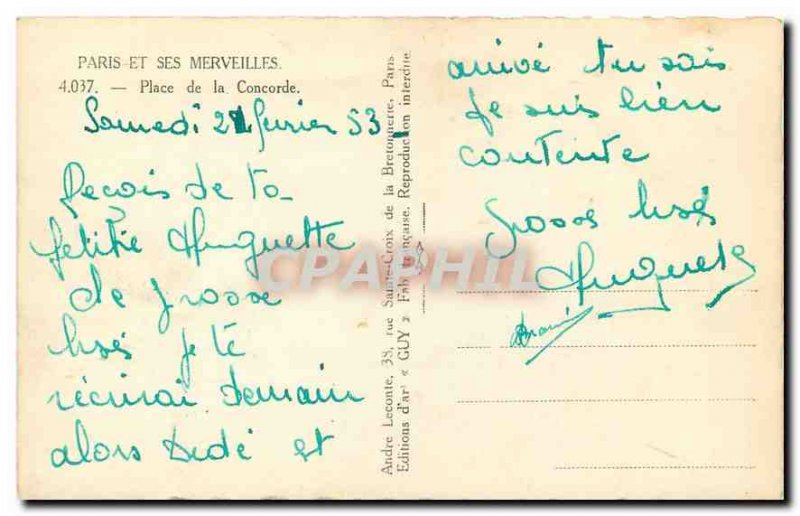 PARIS ET SES MERVEILLES.
4.037. — Place de la Concorde.
Samedi 21 février 53
Reçois de ta
petite Huguette
de grosse
bisés je te
récrirai demain
alors Dédé et
arrivé tu sais
je suis bien
contente
grosse bisés
Huguette
Andre Leconte, 38, rue Sainte-Croix de la Bretonnerie, Paris
Editions d'art « GUY » Fab. Française. Reproduction interdite.
CPAPHIL